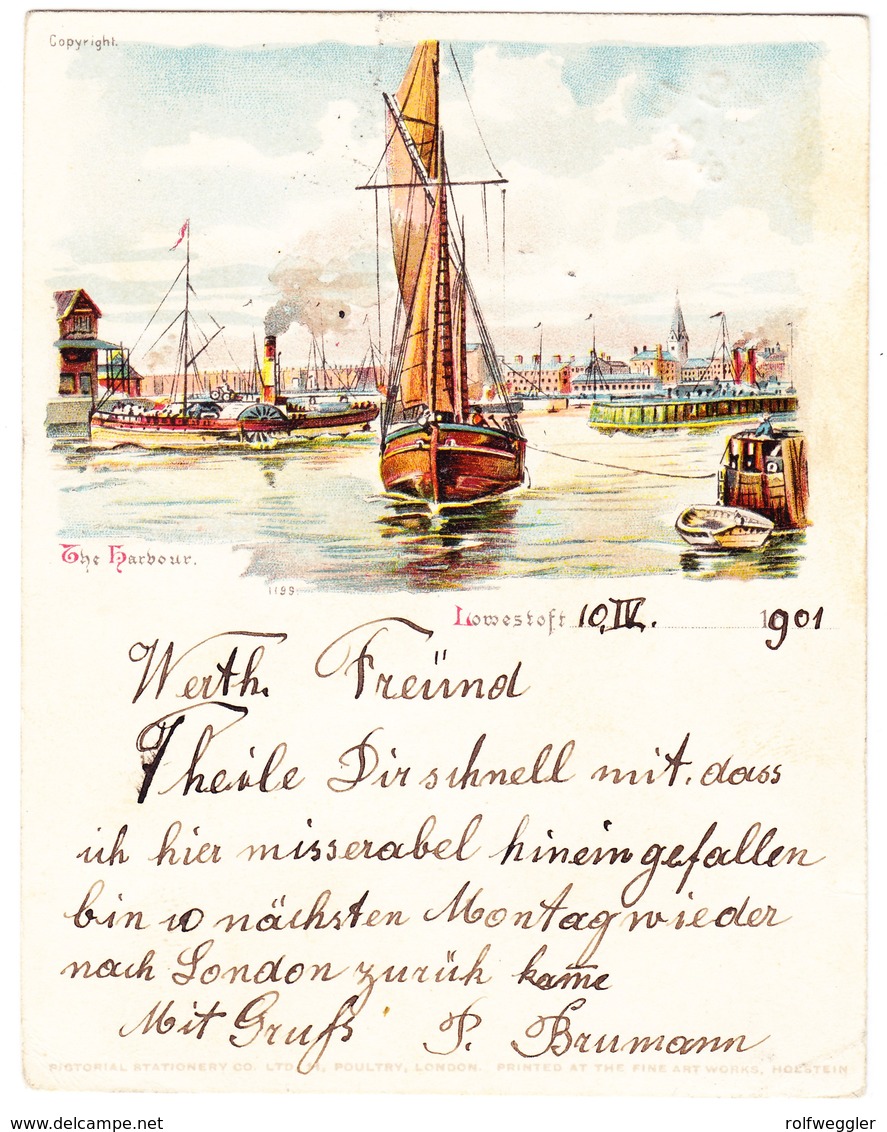 Copyright.
The Harbour.
1199
Lowestoft 10.IV. 1901
Werth. Freünd
Theile Dir schnell mit. dass
ich hier misserabel hineingefallen
bin u nächsten Montag wieder
nach London zurük kom̅e
Mit Gruss P. Brumann
PICTORIAL STATIONERY CO. LTD. POULTRY, LONDON. PRINTED AT THE FINE ART WORKS, HOLSTEIN
delcampe.net
rolfweggler